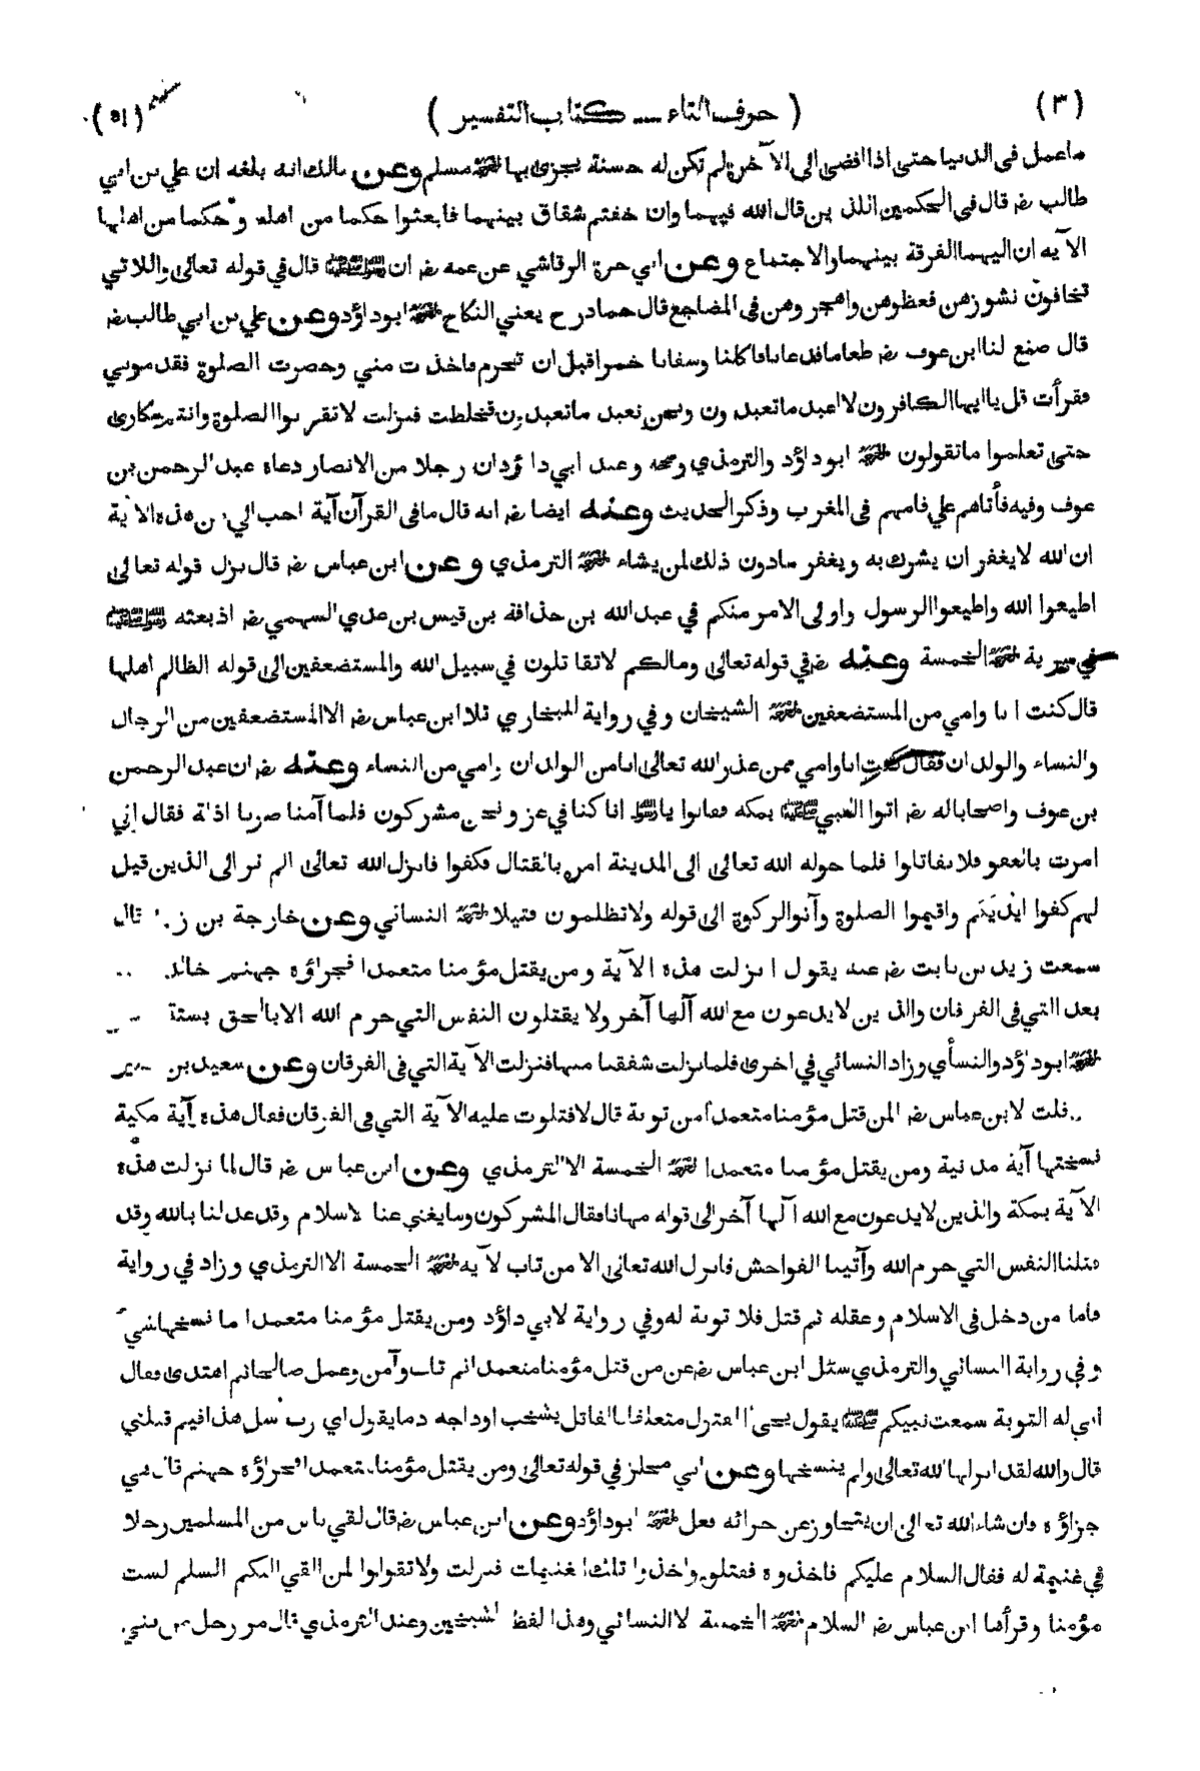 (٣) ( حرف التاء ـــ كتاب التفسير ) (٥١)
ما عمل في الدنيا حتى اذا افضى الى الآخرة لم تكن له حسنة يجزى بها مسلم وعن مالك انه بلغه ان علي بن ابي
طالب رضـ قال في الحكمين اللذين قال الله فيهما وان خفتم شقاق بينهما فابعثوا حكما من اهله وحكما من اهلها
الآيه ان اليهما الفرقة بينهما والاجتماع وعن ابي حرة الرقاشي عن عمه رضـ ان ﷺ قال في قوله تعالى واللاتي
تخافون نشوزهن فعظوهن واهجروهن في المضاجع قال حماد رح يعني النكاح ابوداؤد وعن علي بن ابي طالب رضـ
قال صنع لنا ابن عوف رضـ طعاما فدعانا فاكلنا وسقانا خمرا قبل ان تحرم فاخذت مني وحضرت الصلوة فقدموني
فقرأت قل يا ايها الكافرون لا اعبد ما تعبدون ونحن نعبد ما تعبدون فخلطت فنزلت لا تقربوا الصلوة وانتم سكارى
حتى تعلموا ما تقولون ابوداؤد والترمذي وصححه وعند ابي داؤد ان رجلا من الانصار دعاه عبد الرحمن بن
عوف وفيه فأتاهم علي فامهم في المغرب وذكر الحديث وعنه ايضا رضـ انه قال ما في القرآن آية احب الي من هذه الآية
ان الله لا يغفر ان يشرك به ويغفر ما دون ذلك لمن يشاء الترمذي وعن ابن عباس رضـ قال نزل قوله تعالى
اطيعوا الله واطيعوا الرسول واولى الامر منكم في عبد الله بن حذافه بن قيس بن عدي السهمي رضـ اذ بعثه ﷺ
في سرية الخمسة وعنه رضـ في قوله تعالى ومالكم لا تقاتلون في سبيل الله والمستضعفين الى قوله الظالم اهلها
قال كنت انا وامي من المستضعفين الشيخان وفي رواية للبخاري تلا ابن عباس رضـ الا المستضعفين من الرجال
والنساء والولدان فقال كنت انا وامي ممن عذر الله تعالى انا من الولدان وامي من النساء وعنه رضـ ان عبد الرحمن
بن عوف واصحابا له رضـ اتوا النبي ﷺ بمكه فقالوا يا رسول انا كنا في عز ونحن مشركون فلما آمنا صرنا اذلة فقال إني
امرت بالعفو فلا تقاتلوا فلما حوله الله تعالى الى المدينة امره بالقتال فكفوا فانزل الله تعالى الم تر الى الذين قيل
لهم كفوا ايديكم واقيموا الصلوة وآتوا الزكوة الى قوله ولا تظلمون فتيلا النسائي وعن خارجة بن ز. قال
سمعت زيد بن ثابت رضـ عنه يقول انزلت هذه الآية ومن يقتل مؤمنا متعمدا فجزاؤه جهنم خالد
بعد التي في الفرقان والذين لا يدعون مع الله آلها آخر ولا يقتلون النفس التي حرم الله الا بالحق بستة
ابوداؤد والنسأي وزاد النسائي في اخرى فلما نزلت شفقنا منها فنزلت الآية التي في الفرقان وعن سعيد بن
قلت لابن عباس رضـ المن قتل مؤمنا متعمدا من توبة قال لا فتلوت عليه الآية التي في الفرقان فقال هذه آية مكية
نسختها آية مدنية ومن يقتل مؤمنا متعمدا الخمسة الا الترمذي وعن ابن عباس رضـ قال لما نزلت هذه
الآية بمكة والذين لا يدعون مع الله آلها آخر الى قوله مهانا فقال المشركون وما يغني عنا الاسلام وقد عدلنا بالله وقد
قتلنا النفس التي حرم الله وآتينا الفواحش فانزل الله تعالى الا من تاب الآيه الخمسة الا الترمذي وزاد في رواية
فاما من دخل في الاسلام وعقله ثم قتل فلا توبة له وفي رواية لابي داؤد ومن يقتل مؤمنا متعمدا ما نسخها شيء
وفي رواية النسائي والترمذي سئل ابن عباس رضـ عن من قتل مؤمنا متعمدا ثم تاب وآمن وعمل صالحا ثم اهتدى فقال
انى له التوبة سمعت نبيكم ﷺ يقول يجيء المقتول متعلقا بالقاتل يشخب اوداجه دما يقول اي رب سل هذا فيم قتلني
قال والله لقد انزلها الله تعالى ولم ينسخها وعن ابي مجلز في قوله تعالى ومن يقتل مؤمنا متعمدا فجزاؤه جهنم قال هي
جزاؤه فان شاء الله تعالى ان يتجاوز عن جزائه فعل ابوداؤد وعن ابن عباس رضـ قال لقي ناس من المسلمين رجلا
في غنيمة له فقال السلام عليكم فاخذوه فقتلوه واخذوا تلك الغنيمات فنزلت ولا تقولوا لمن القي اليكم السلم لست
مؤمنا وقرأها ابن عباس رضـ السلام الخمسة الا النسائي وهذا لفظ الشيخين وعند الترمذي قال مر رجل من بني